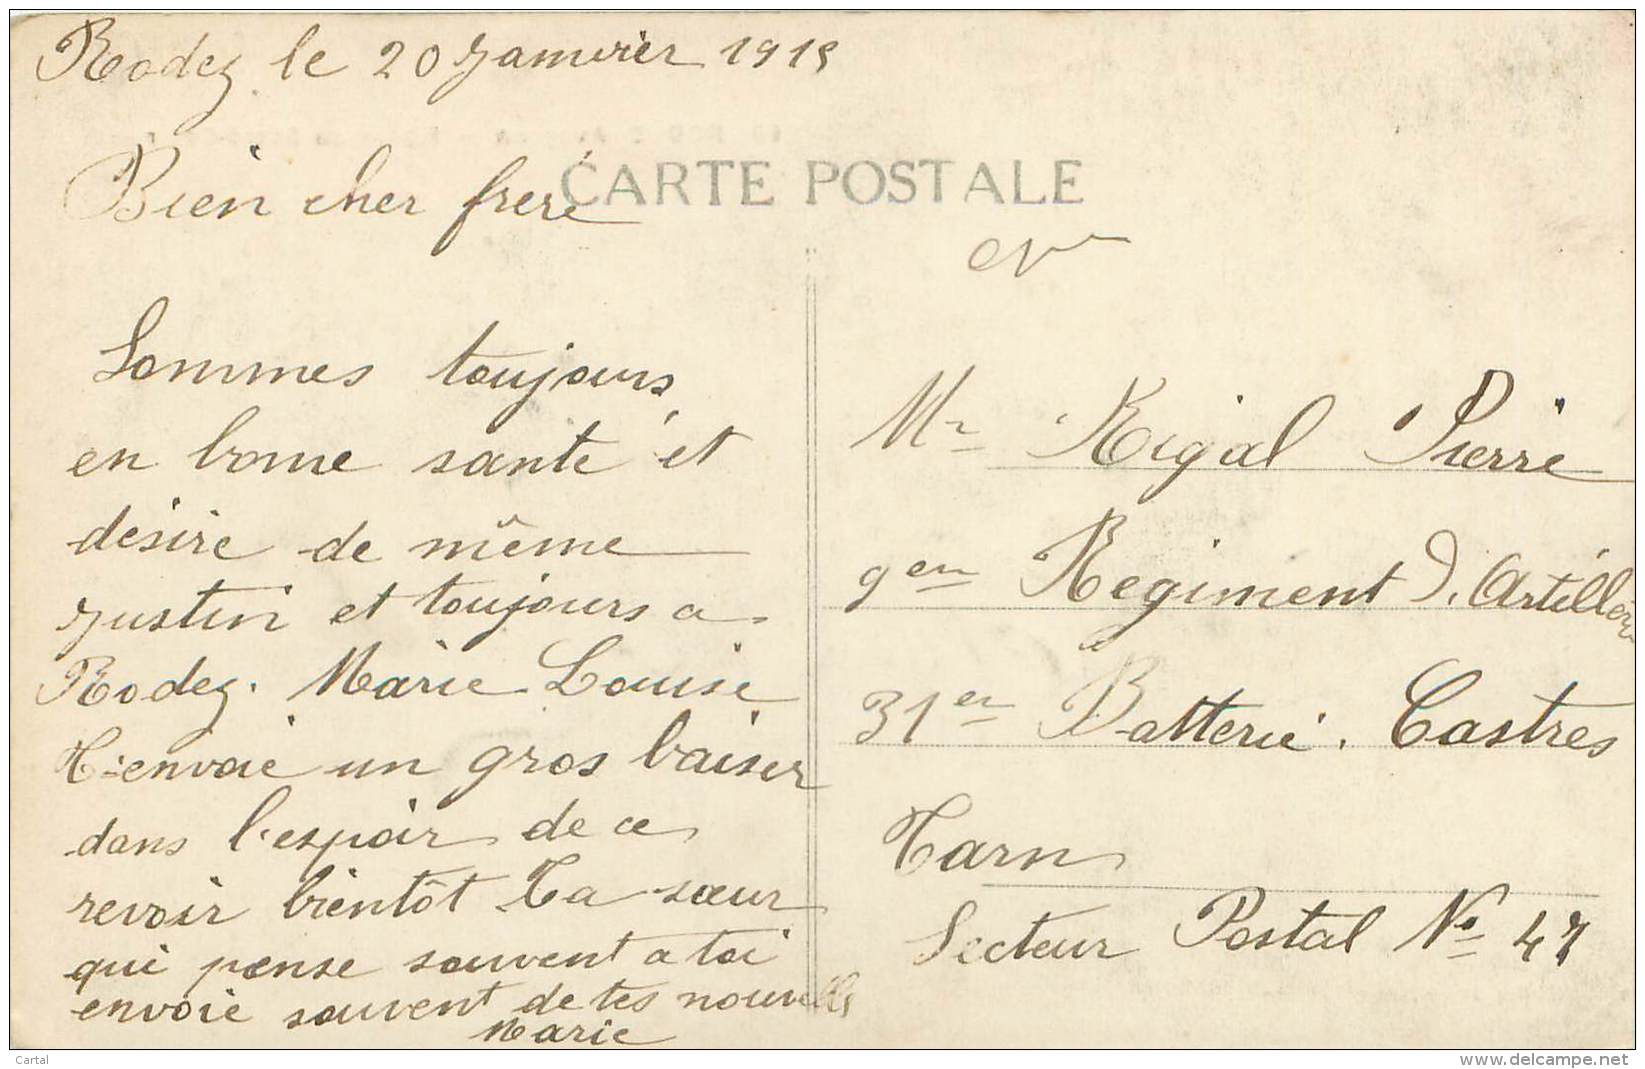 Rodez le 20 Janvier 1915
Bien cher frère
CARTE POSTALE
Sommes toujours
en bonne santé et
désire de même
Justin et toujours a
Rodez. Marie Louise
T'envoie un gros baiser
dans l'espoir de ce
revoir bientôt Ta sœur
qui pense souvent a toi
envoie souvent de tes nouvelles
Marie
Mr Rigal Pierre
9em Regiment d'Artillerie
31er Batterie. Castres
Tarn
Secteur Postal No 47
Cartal
www.delcampe.net